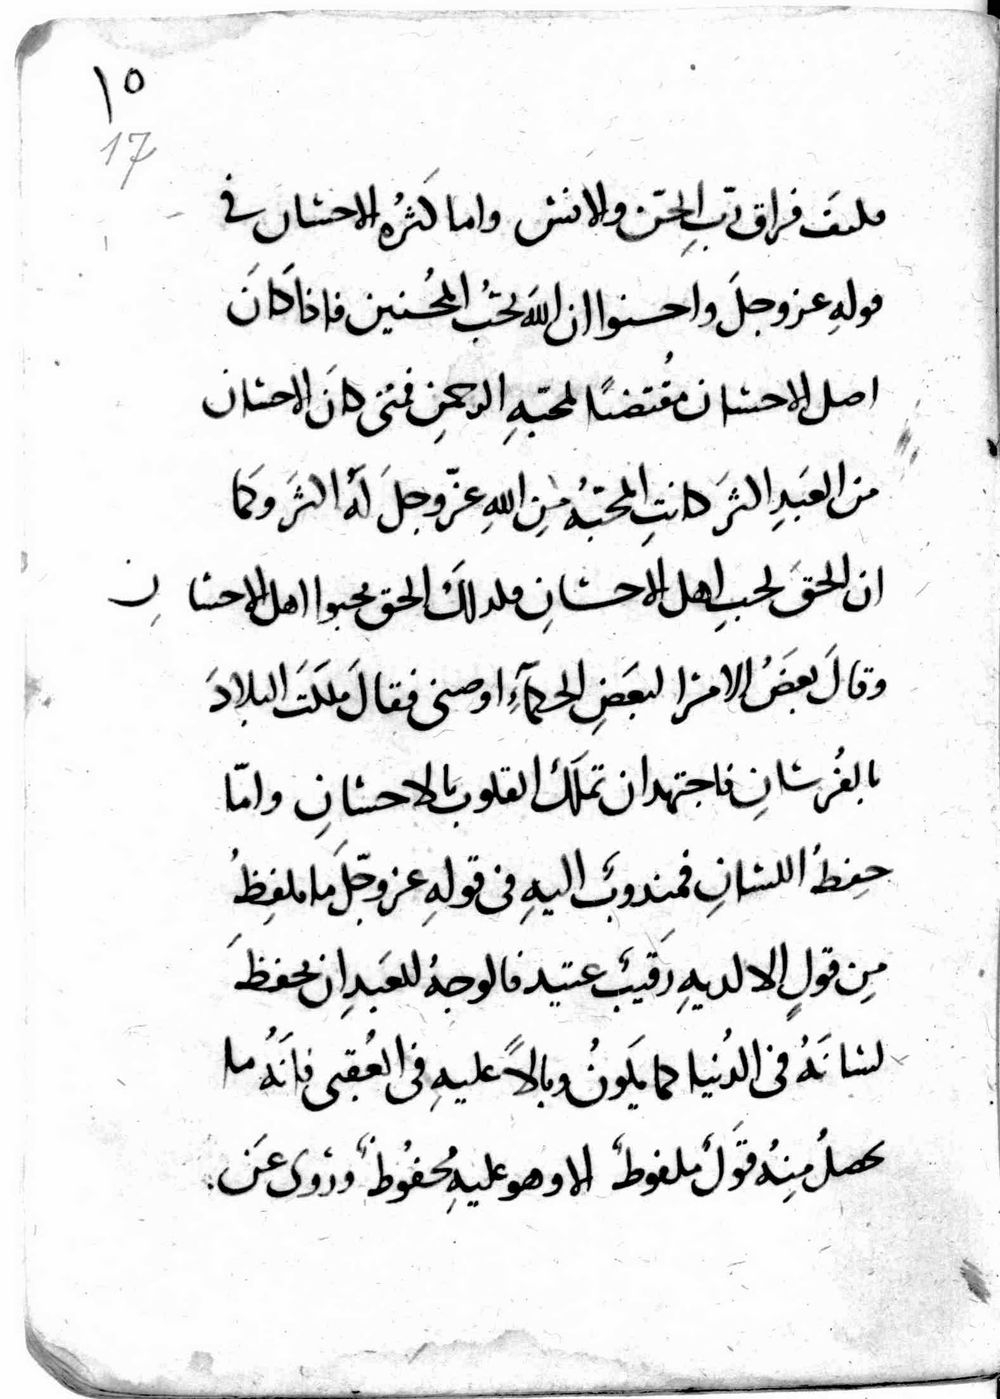 ١٥
17
فكيف فراق ربِ الجن والانس واما كثرُه الاحسان في
قولهِ عز وجلَ واحسنوا ان اللهَ يحبُ المُحسنين فاذا كانَ
اصل الاحسان مُقتضيًا لمحبةِ الرحمنِ فمتى كانَ الاحسان
من العَبدِ اكثرَ كانتِ المحبةُ مِن اللهِ عزّ وجلَ لهُ اكثرَ وكما
ان الحقَ يحب اهل الاحسانِ فلذلك الحق محبوا اهل الاحسان
وقالَ بعَضُ الامرا لبعَضِ الحكمآءِ اوصنى فقالَ ملكتَ البلادَ
بالفُرسانِ فاجتهد ان تملكَ القلوب بالاحسانِ وامّا
حفِظُ اللسانِ فمندوبٌ اليهِ فى قولهِ عز وجّلَ ما يلفِظُ
مِن قولٍ الا لديهِ رَقيبٌ عتيد فالوجهُ للعَبدِ ان يحفظَ
لسانَهُ فى الدُنيا كما يكونُ وبالاً عليهِ فى العُقبى فانَهُ ما
يحصلُ مِنهُ قَولٌ ملفوظٌ الا وهو عليهِ مُحفوُظٌ ورُوى عَن